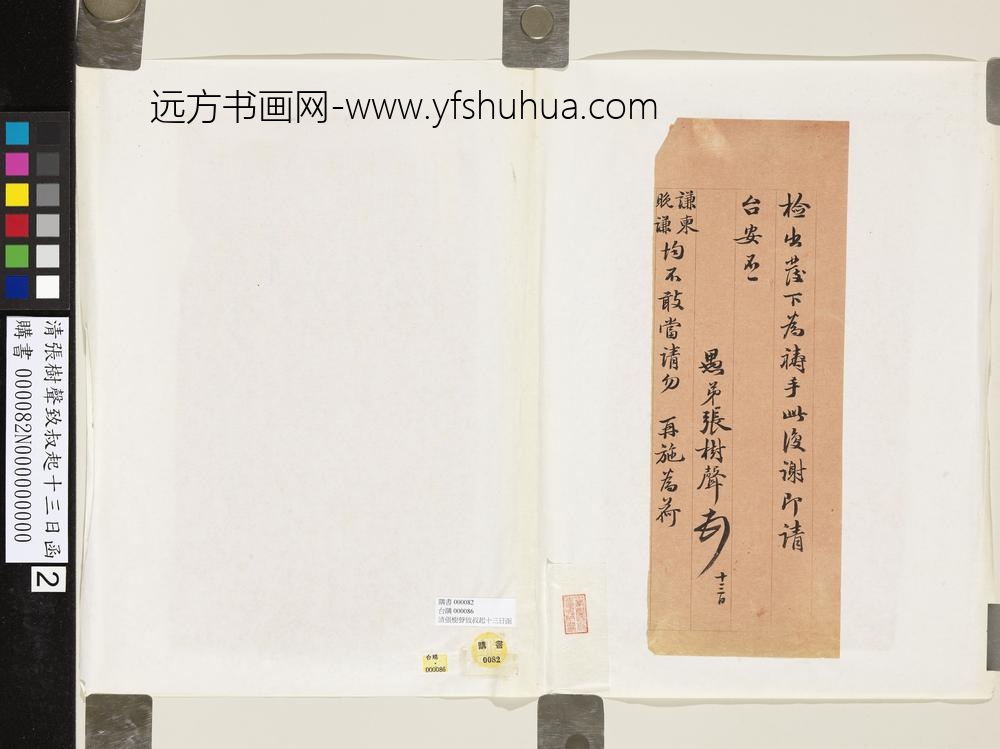 远方书画网-www.yfshuhua.com
检出蓰下為禱手此復谢即请
台安不一
愚弟張樹聲
十三日
謙柬
晚謙
均不敢當请勿 再施為荷
清張樹聲致叔起十三日函
購書 000082N000000000
2
購書 000082
台購 000086
清張樹聲致叔起十三日函
購書
0082
台購
000086